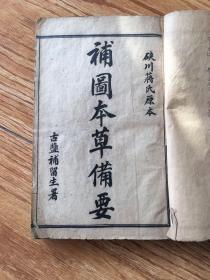 硤川蔣氏原本
補圖本草備要
古鹽補留生署